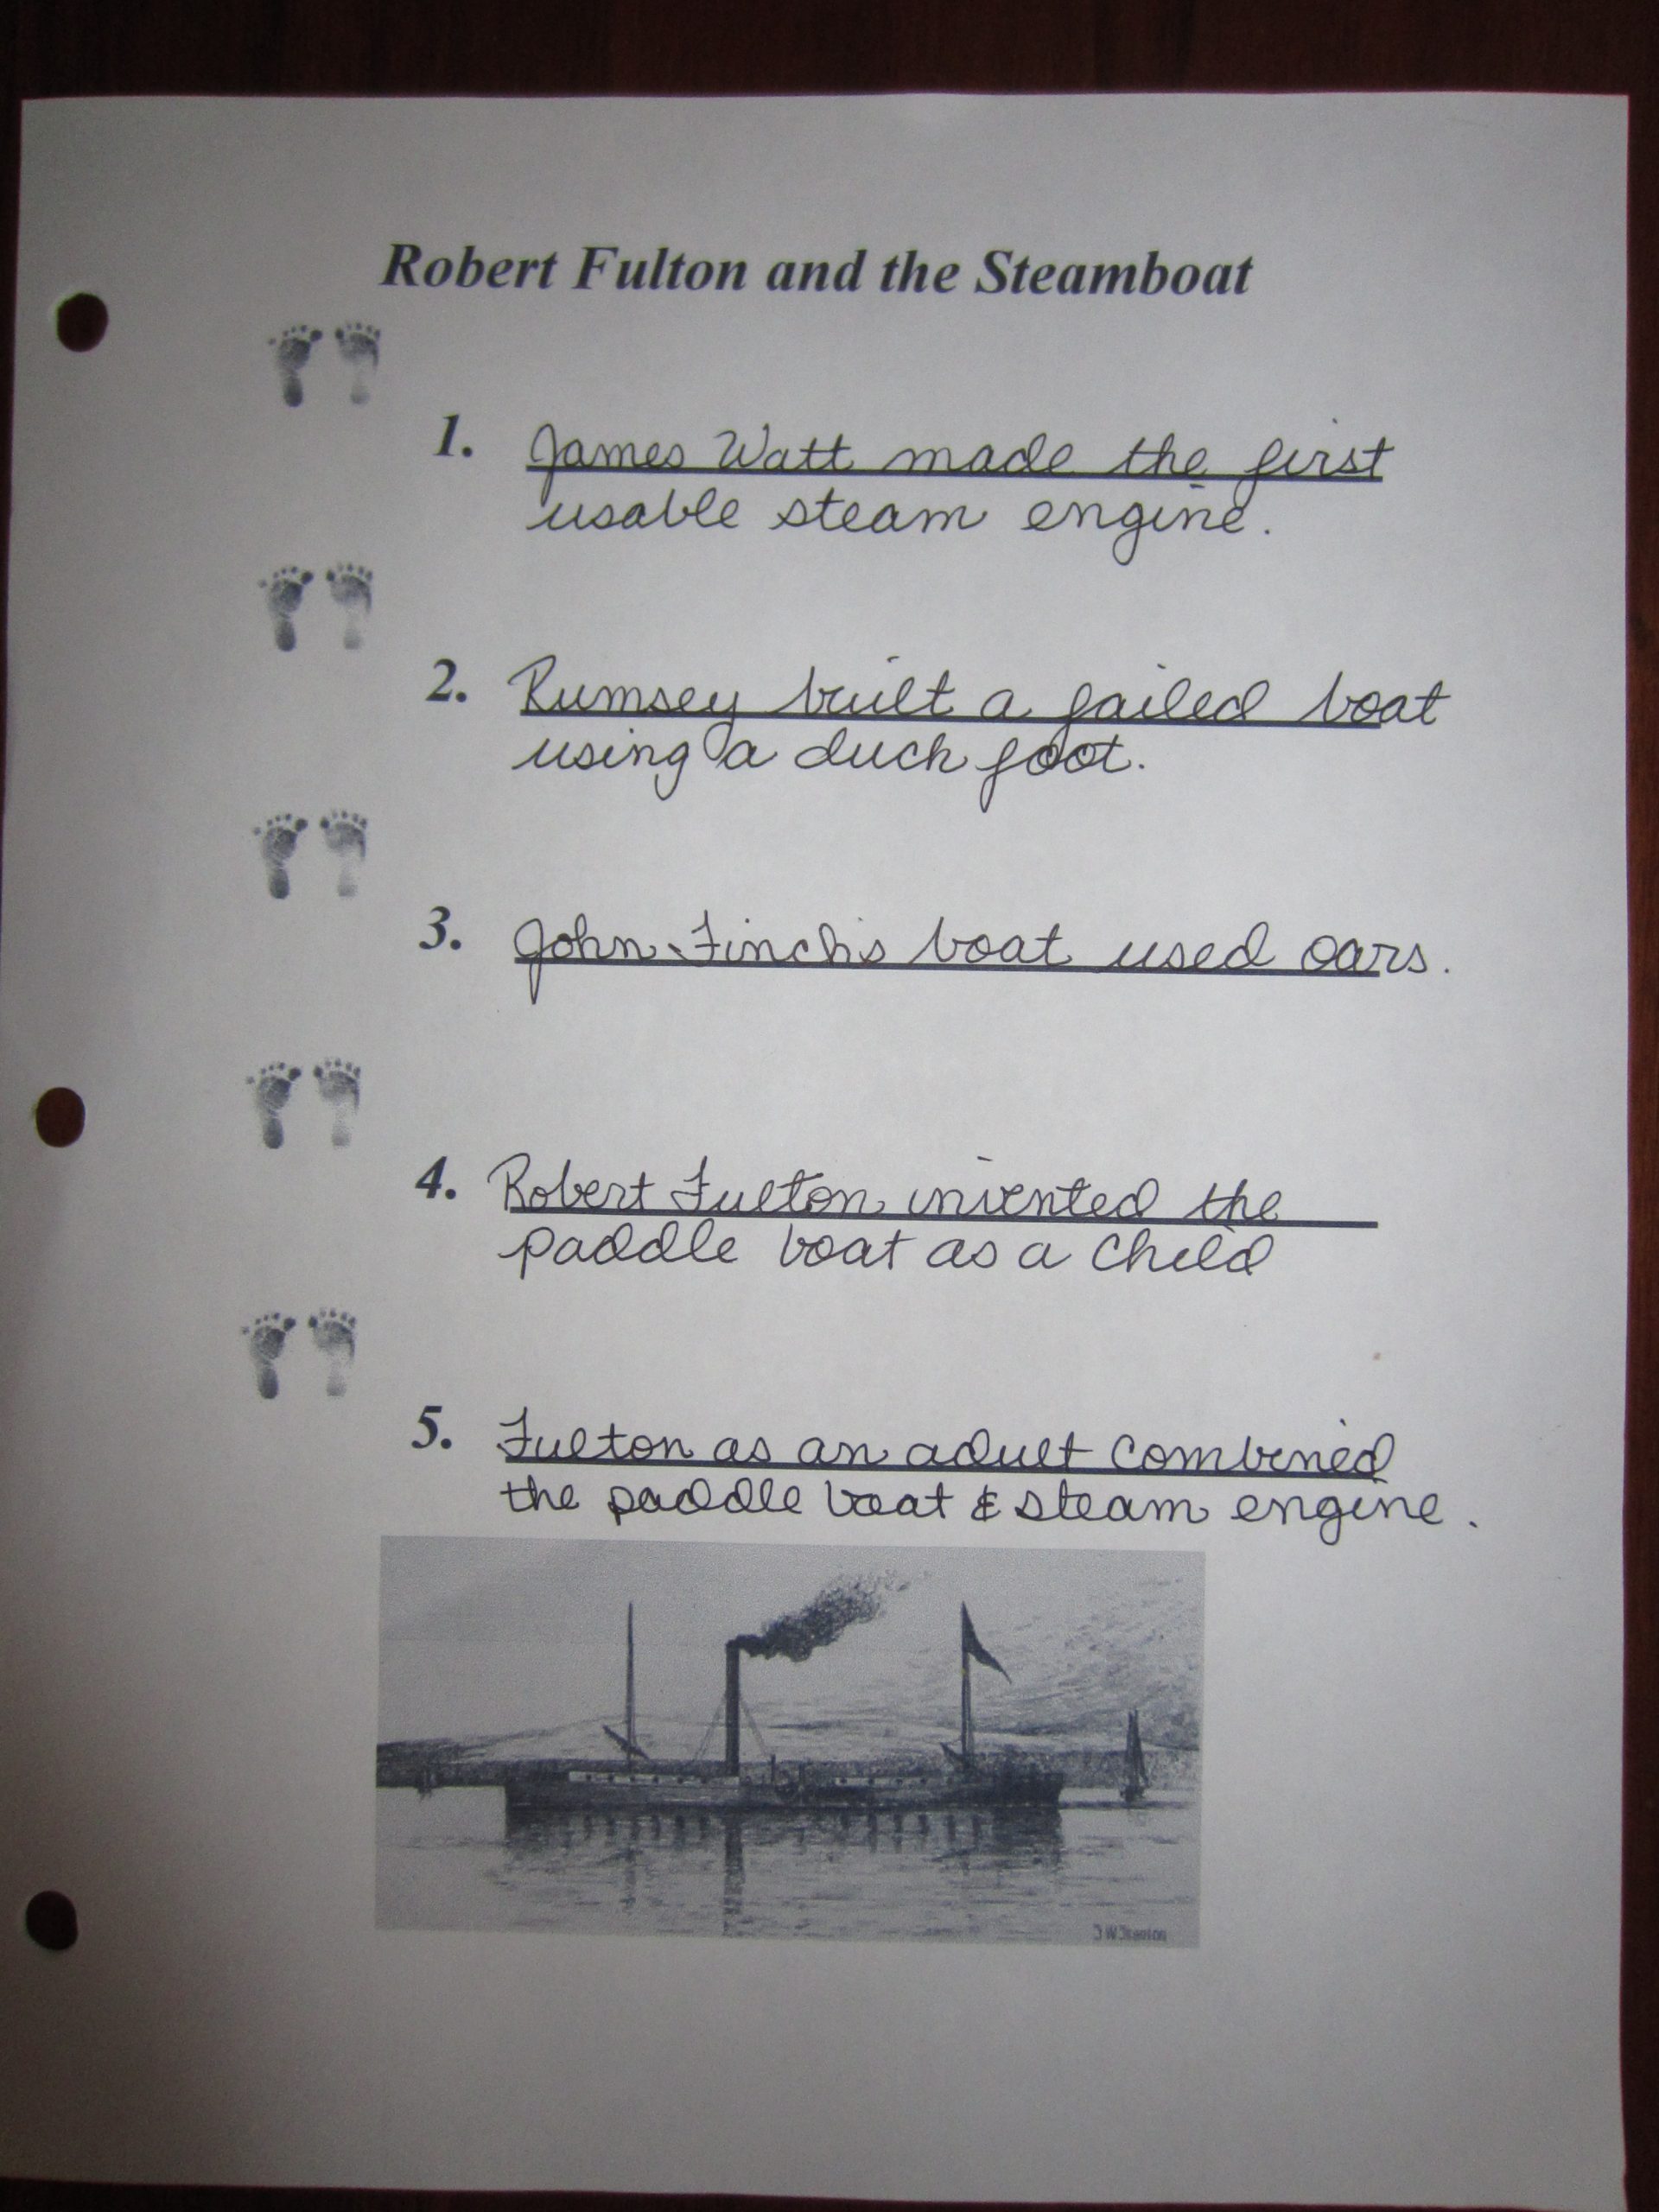 Robert Fulton and the Steamboat
1. James Watt made the first
usable steam engine.
2. Rumsey built a failed boat
using a duck foot.
3. John Finch's boat used oars.
4. Robert Fulton invented the
paddle boat as a child
5. Fulton as an adult combined
the paddle boat & steam engine.